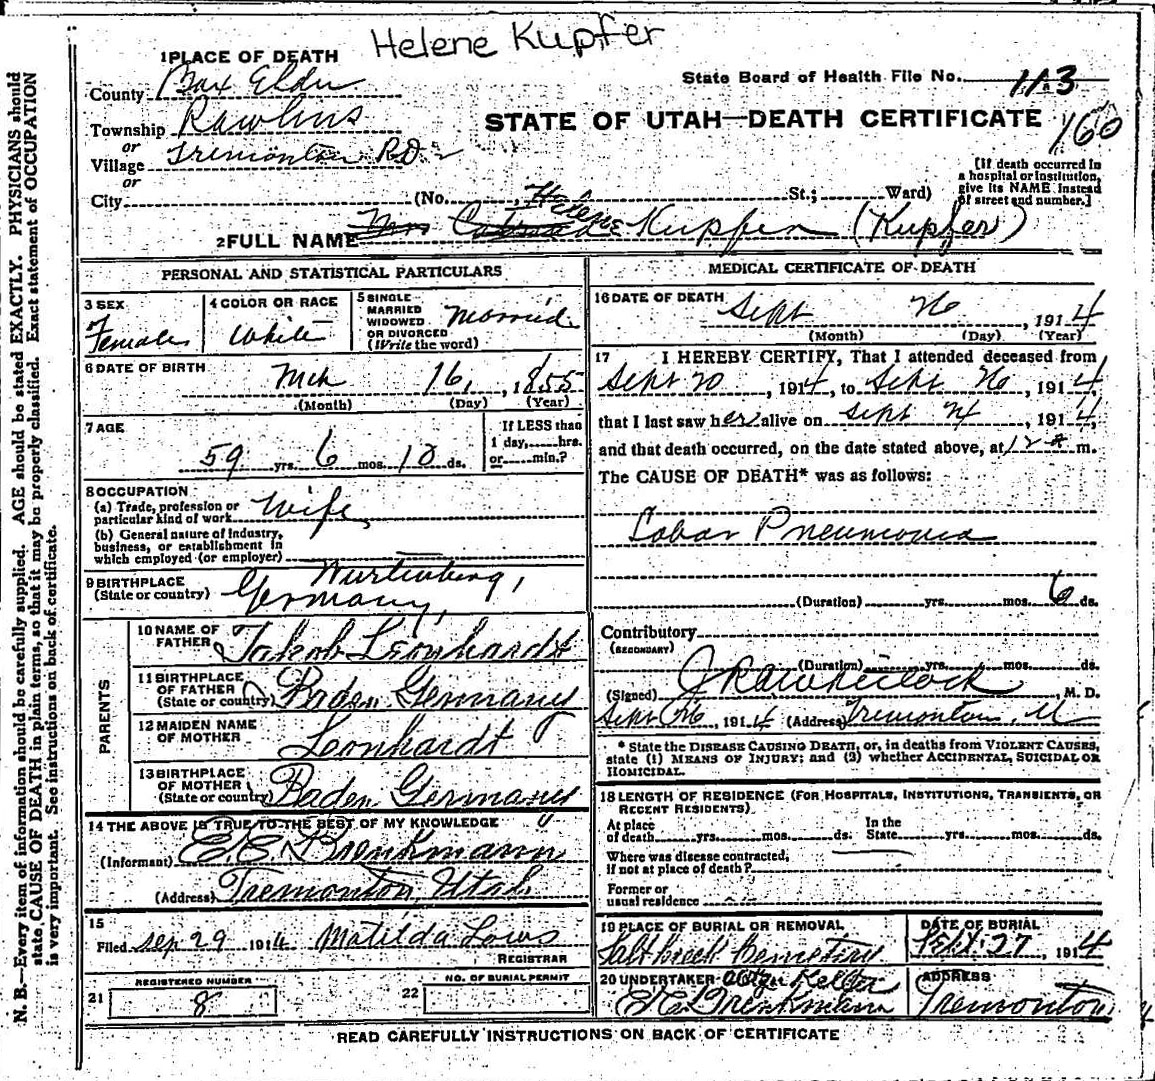 Helene Kupfer
1 PLACE OF DEATH
State Board of Health File No. 113
County Box Elder
STATE OF UTAH—DEATH CERTIFICATE 160
Township Rawlins
or
Village Tremonton R.D. 2
or
[If death occurred in a hospital or institution, give its NAME instead of street and number.]
City (No. St.; Ward)
2 FULL NAME Mrs Helene Kupfer (Kupfer)
PERSONAL AND STATISTICAL PARTICULARS
3 SEX Female
4 COLOR OR RACE White
5 SINGLE MARRIED WIDOWED OR DIVORCED (Write the word) Married
6 DATE OF BIRTH Mch 16, 1855
(Month) (Day) (Year)
7 AGE 59 yrs. 6 mos. 10 ds.
If LESS than 1 day, hrs. or min.?
8 OCCUPATION
(a) Trade, profession or particular kind of work Wife,
(b) General nature of industry, business, or establishment in which employed (or employer)
9 BIRTHPLACE (State or country) Wurtenberg, Germany,
PARENTS
10 NAME OF FATHER Jakob Leonhardt
11 BIRTHPLACE OF FATHER (State or country) Baden Germany
12 MAIDEN NAME OF MOTHER Leonhardt
13 BIRTHPLACE OF MOTHER (State or country) Baden Germany
14 THE ABOVE IS TRUE TO THE BEST OF MY KNOWLEDGE
(Informant) E.C. Brenkmann
(Address) Tremonton, Utah.
15
Filed Sep 29 1914 Matilda
REGISTRAR
REGISTERED NUMBER
21 8
NO. OF BURIAL PERMIT
22
MEDICAL CERTIFICATE OF DEATH
16 DATE OF DEATH Sept 26, 1914
(Month) (Day) (Year)
17 I HEREBY CERTIFY, That I attended deceased from
Sept 20, 1914, to Sept 26, 1914
that I last saw her alive on Sept 24, 1914,
and that death occurred, on the date stated above, at 12 a m.
The CAUSE OF DEATH* was as follows:
Lobar Pneumonia
(Duration) yrs. mos. 6 ds.
Contributory
(SECONDARY)
(Duration) yrs. mos. ds.
(Signed) M.D.
Sept 26, 1914 (Address) Tremonton, U
* State the DISEASE CAUSING DEATH, or, in deaths from VIOLENT CAUSES,
state (1) MEANS OF INJURY; and (2) whether ACCIDENTAL, SUICIDAL OR
HOMICIDAL.
18 LENGTH OF RESIDENCE (FOR HOSPITALS, INSTITUTIONS, TRANSIENTS, OR
RECENT RESIDENTS).
At place of death yrs. mos. ds. In the State yrs. mos. ds.
Where was disease contracted, if not at place of death?
Former or usual residence
19 PLACE OF BURIAL OR REMOVAL Salt Creek Cemetery
DATE OF BURIAL Sept. 27, 1914
20 UNDERTAKER E.C. Brenkmann
ADDRESS Tremonton
READ CAREFULLY INSTRUCTIONS ON BACK OF CERTIFICATE
N. B.—Every item of information should be carefully supplied. AGE should be stated EXACTLY. PHYSICIANS should
state CAUSE OF DEATH in plain terms, so that it may be properly classified. Exact statement of OCCUPATION
is very important. See instructions on back of certificate.